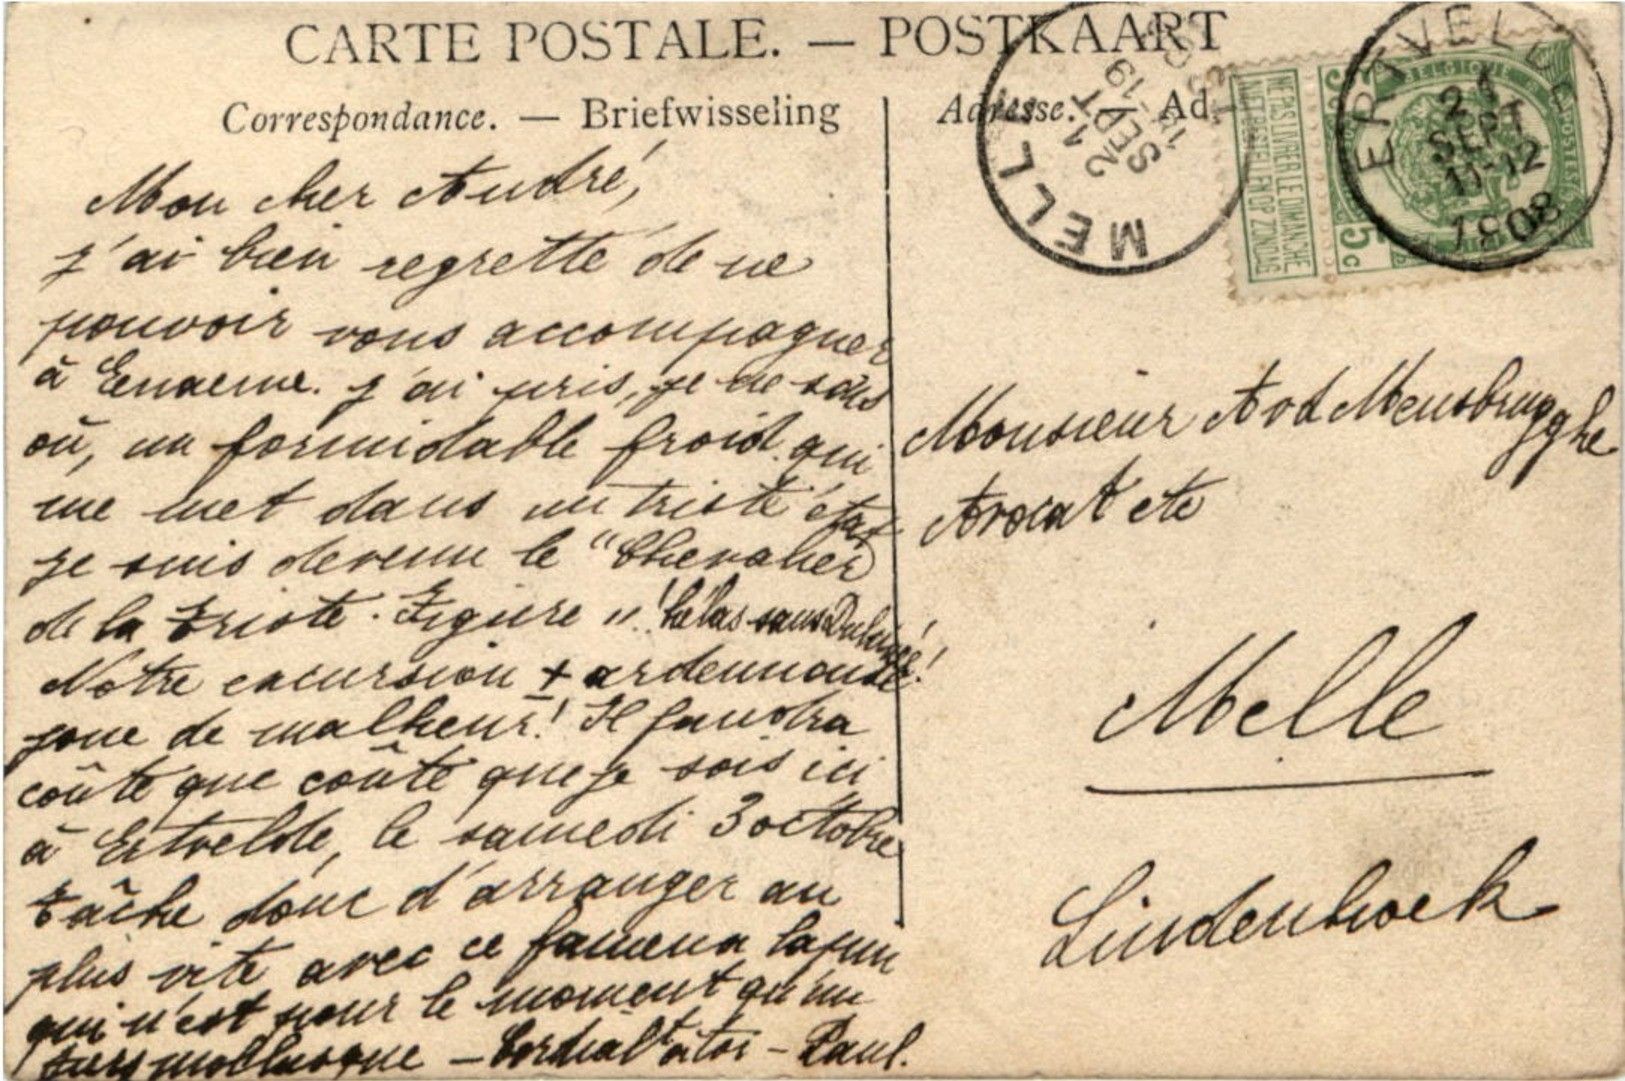 CARTE POSTALE. — POSTKAART
Correspondance. — Briefwisseling
Adresse. Ad
MELLE
21
SEPT
ERTVELDE
21
SEPT
11-12
1908
BELGIQUE
POSTES
5c
NE PAS LIVRER LE DIMANCHE
NIET BESTELLEN OP ZONDAG
Mon cher André,
j'ai bien regretté de ne
pouvoir vous accompagner
à Enaeme. j'ai pris, je ne sais
où, un formidable froid qui
me met dans un triste état
je suis devenu le "Chevalier
de la triste Figure"! hélas sans Dulcinée!
Notre excursion + ardennaise
joue de malheur! Il faudra
coûte que coûte que je sois ici
à Ertvelde, le samedi 3 octobre
tâche donc d'arranger au
plus vite avec ce fameux
qui n'est pour le moment qu'un
mollusque – Cordialt à toi – Paul.
Monsieur A vd Mensbrugghe
Avocat etc
Melle
Lindenhoek